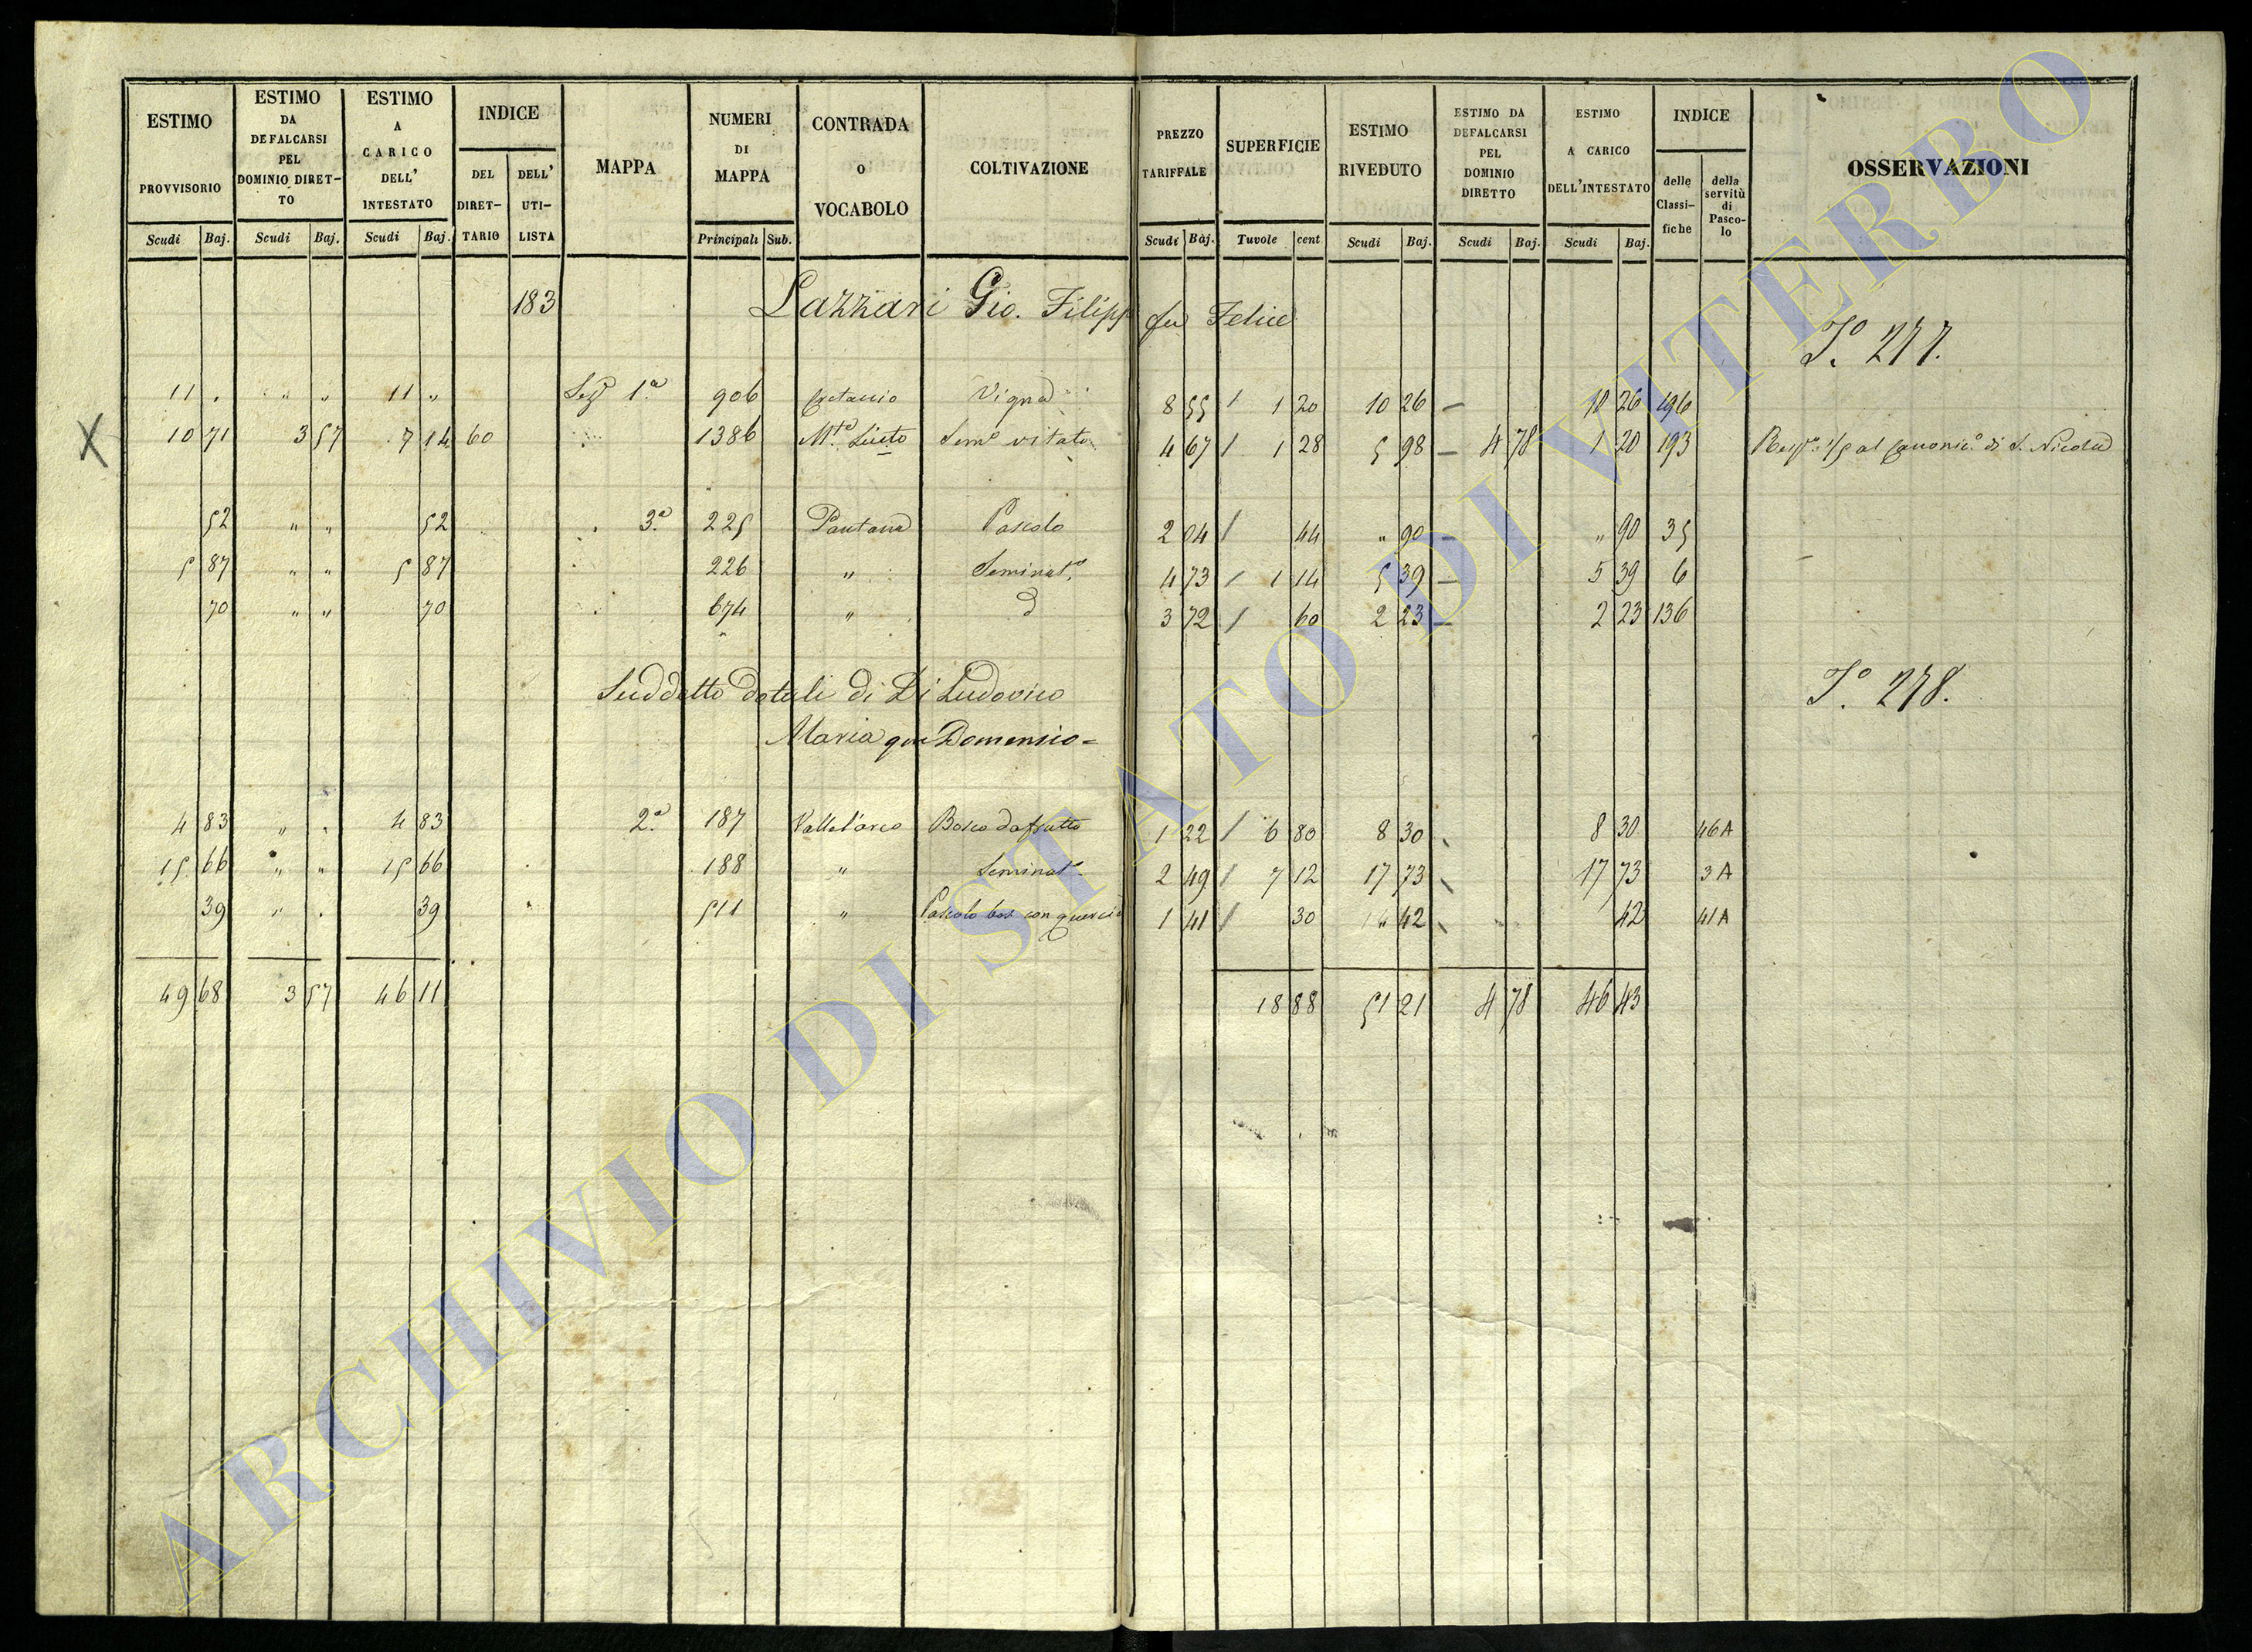 ESTIMO PROVVISORIO Scudi Baj.
ESTIMO DA DEFALCARSI PEL DOMINIO DIRET- TO Scudi Baj.
ESTIMO A CARICO DELL' INTESTATO Scudi Baj.
INDICE DEL DIRET- TARIO DELL' UTI- LISTA
MAPPA
NUMERI DI MAPPA Principali Sub.
CONTRADA O VOCABOLO
COLTIVAZIONE
PREZZO TARIFFALE Scudi Baj.
SUPERFICIE Tavole cent
ESTIMO RIVEDUTO Scudi Baj.
ESTIMO DA DEFALCARSI PEL DOMINIO DIRETTO Scudi Baj.
ESTIMO A CARICO DELL'INTESTATO Scudi Baj.
INDICE delle Classi- fiche della servitù di Pasco- lo
OSSERVAZIONI
183 Lazzari Gio. Filipp fu Felice
Tº. 277.
11 " " " 11 " Sezº 1.ª 906 Vigna 8 55 / 1 20 10 26 — 10 26 196
X 10 71 3 57 7 14 60 1386 M.te Lieto Semº vitato 4 67 / 1 28 5 98 — 4 78 1 20 193 Rispª 1/5 al Canonic.º di S. Nicola
52 " " 52 3.ª 225 Pantana Pascolo 2 04 / 44 " 90 — " 90 35
5 87 " " 5 87 226 " Seminat.º 4 73 / 1 14 5 39 — 5 39 6
70 " " 70 674 " dº 3 72 / 60 2 23 — 2 23 136
Suddetto dotali di Di Ludovico
Maria qm Domenico =
Tº. 278.
4 83 " " 4 83 2.ª 187 Valledarco Bosco da frutto 1 22 / 6 80 8 30 8 30 46A
15 66 " " 15 66 188 " Seminat.º 2 49 / 7 12 17 73 17 73 3A
39 " " 39 511 " Pascolo bos. con querci 1 41 / 30 " 42 42 41A
49 68 3 57 46 11 18 88 51 21 4 78 46 43
ARCHIVIO DI STATO DI VITERBO